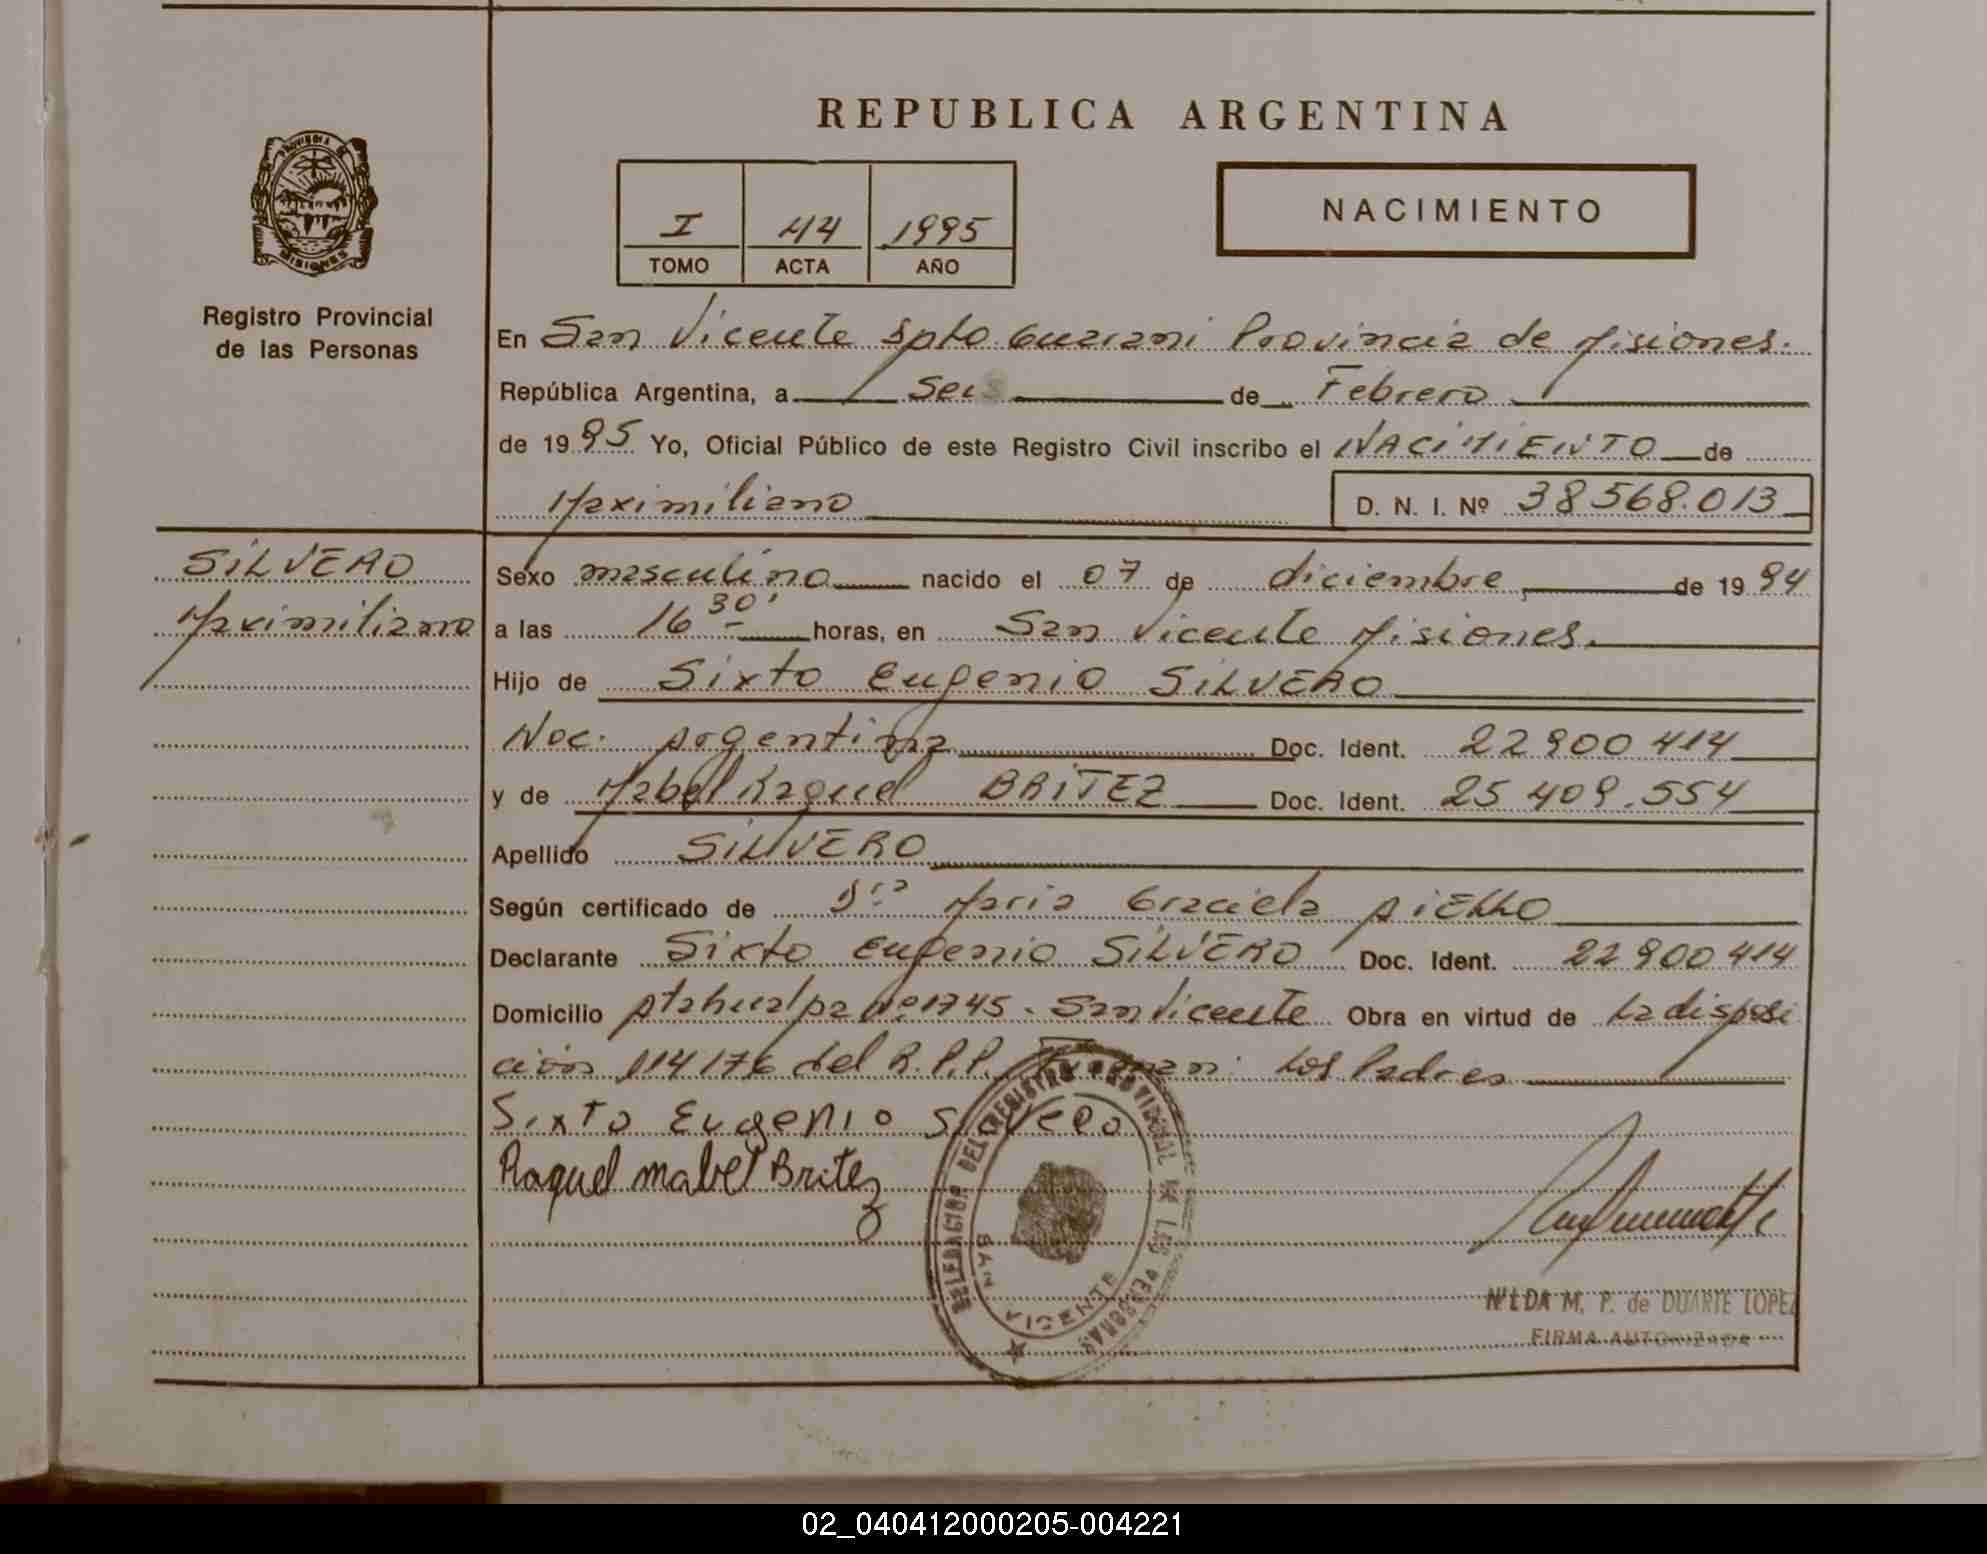 REPUBLICA ARGENTINA
I 44 1995
TOMO ACTA AÑO
NACIMIENTO
PROVINCIA DE
MISIONES
Registro Provincial
de las Personas
En San Vicente Dpto. Guarani Provincia de Misiones.
República Argentina, a Seis de Febrero
de 1995 Yo, Oficial Público de este Registro Civil inscribo el NACIMIENTO de
Maximiliano D. N. I. Nº 38568.013
SILVERO
Maximiliano
Sexo masculino nacido el 07 de diciembre de 1994
a las 16 30' horas, en San Vicente Misiones.
Hijo de Sixto Eugenio SILVERO
Nac. Argentina Doc. Ident. 22900414
y de Mabel Raquel BRITEZ Doc. Ident. 25 409.554
Apellido SILVERO
Según certificado de Dra Maria Graciela
Declarante Sixto Eugenio SILVERO Doc. Ident. 22900414
Domicilio Atahualpa Nº 1745. San Vicente Obra en virtud de La disposi
ción 114176 del R.P.P. Los Padres
Sixto Eugenio Silvero
Raquel Mabel Britez
DELEGACION DEL REGISTRO PROVINCIAL DE LAS PERSONAS
SAN VICENTE
NILDA M. P. de DUARTE LOPEZ
FIRMA AUTORIZADA
02_040412000205-004221